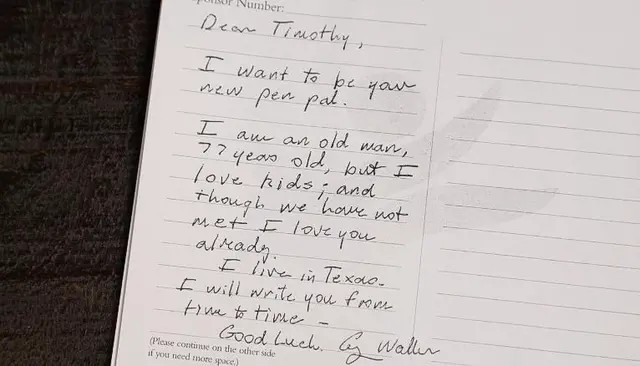 ponsor Number:
Dear Timothy,
I want to be your
new pen pal.
I am an old man,
77 years old, but I
love kids; and
though we have not
met I love you
already.
I live in Texas.
I will write you from
time to time -
Good Luck. G. Walker
(Please continue on the other side
if you need more space.)